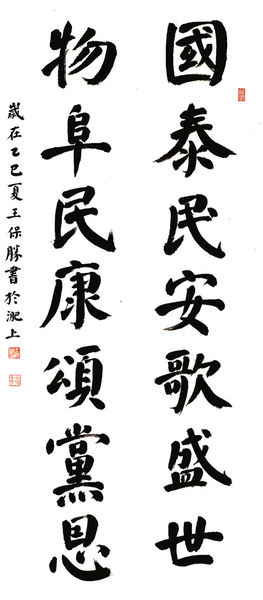 國泰民安歌盛世
物阜民康頌黨恩
歲在乙巳夏王保勝書於淝上